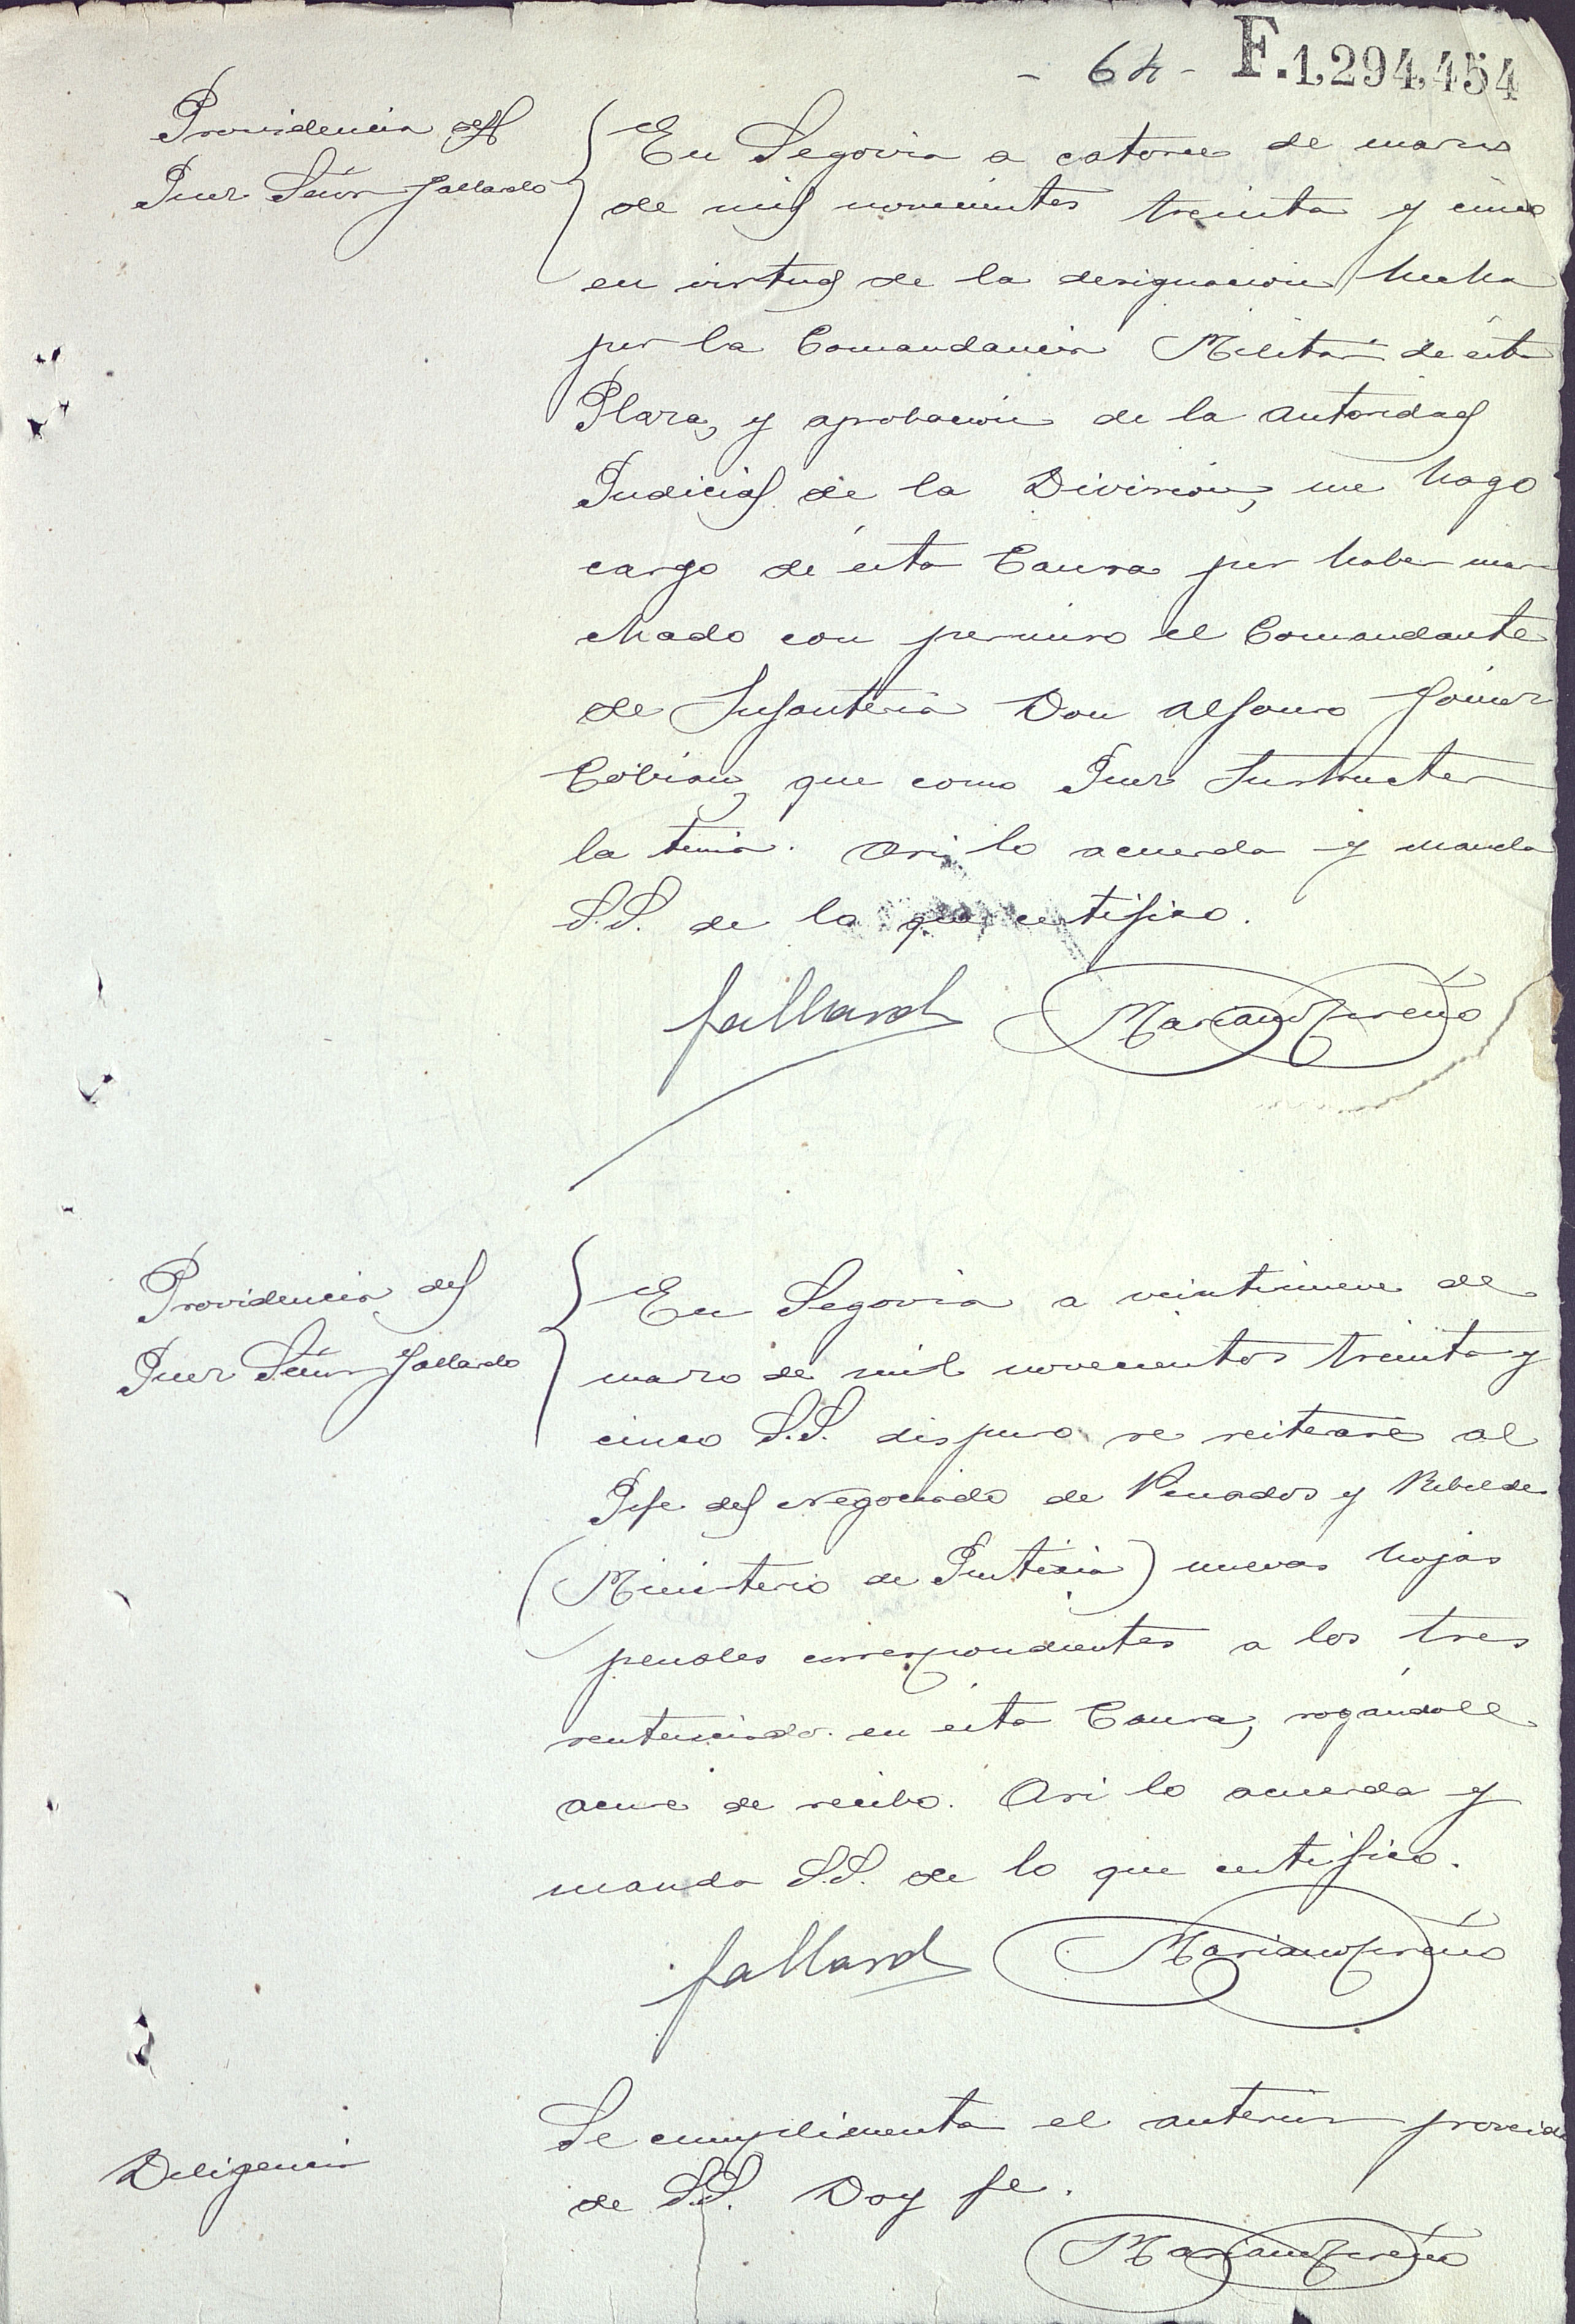 - 64 - F.1,294,454
Providencia del
Juez Señor Gallardo
En Segovia a catorce de marzo
de mil novecientos treinta y cinco
en virtud de la designación hecha
por la Comandancia Militar de ésta
Plaza, y aprobación de la autoridad
Judicial de la División, me hago
cargo de ésta Causa por haber mar
chado con permiso el Comandante
de Infantería Don Alfonso Gómez
Cobián, que como Juez Instructor
la tenía. Asi lo acuerda y manda
S.S. de lo que certifico.
Gallardo Mariano
Providencia del
Juez Señor Gallardo
En Segovia a veintinueve de
marzo de mil novecientos treinta y
cinco S.S. dispuso se reiterase al
Jefe del Negociado de Penados y Rebeldes
(Ministerio de Justicia) nuevas hojas
penales correspondientes a los tres
sentenciados en ésta Causa, rogándole
acuse de recibo. Asi lo acuerda y
manda S.S. de lo que certifico.
Gallardo Mariano
Diligencia
Se cumplimenta el anterior proveido
de S.S. Doy fe.
Mariano